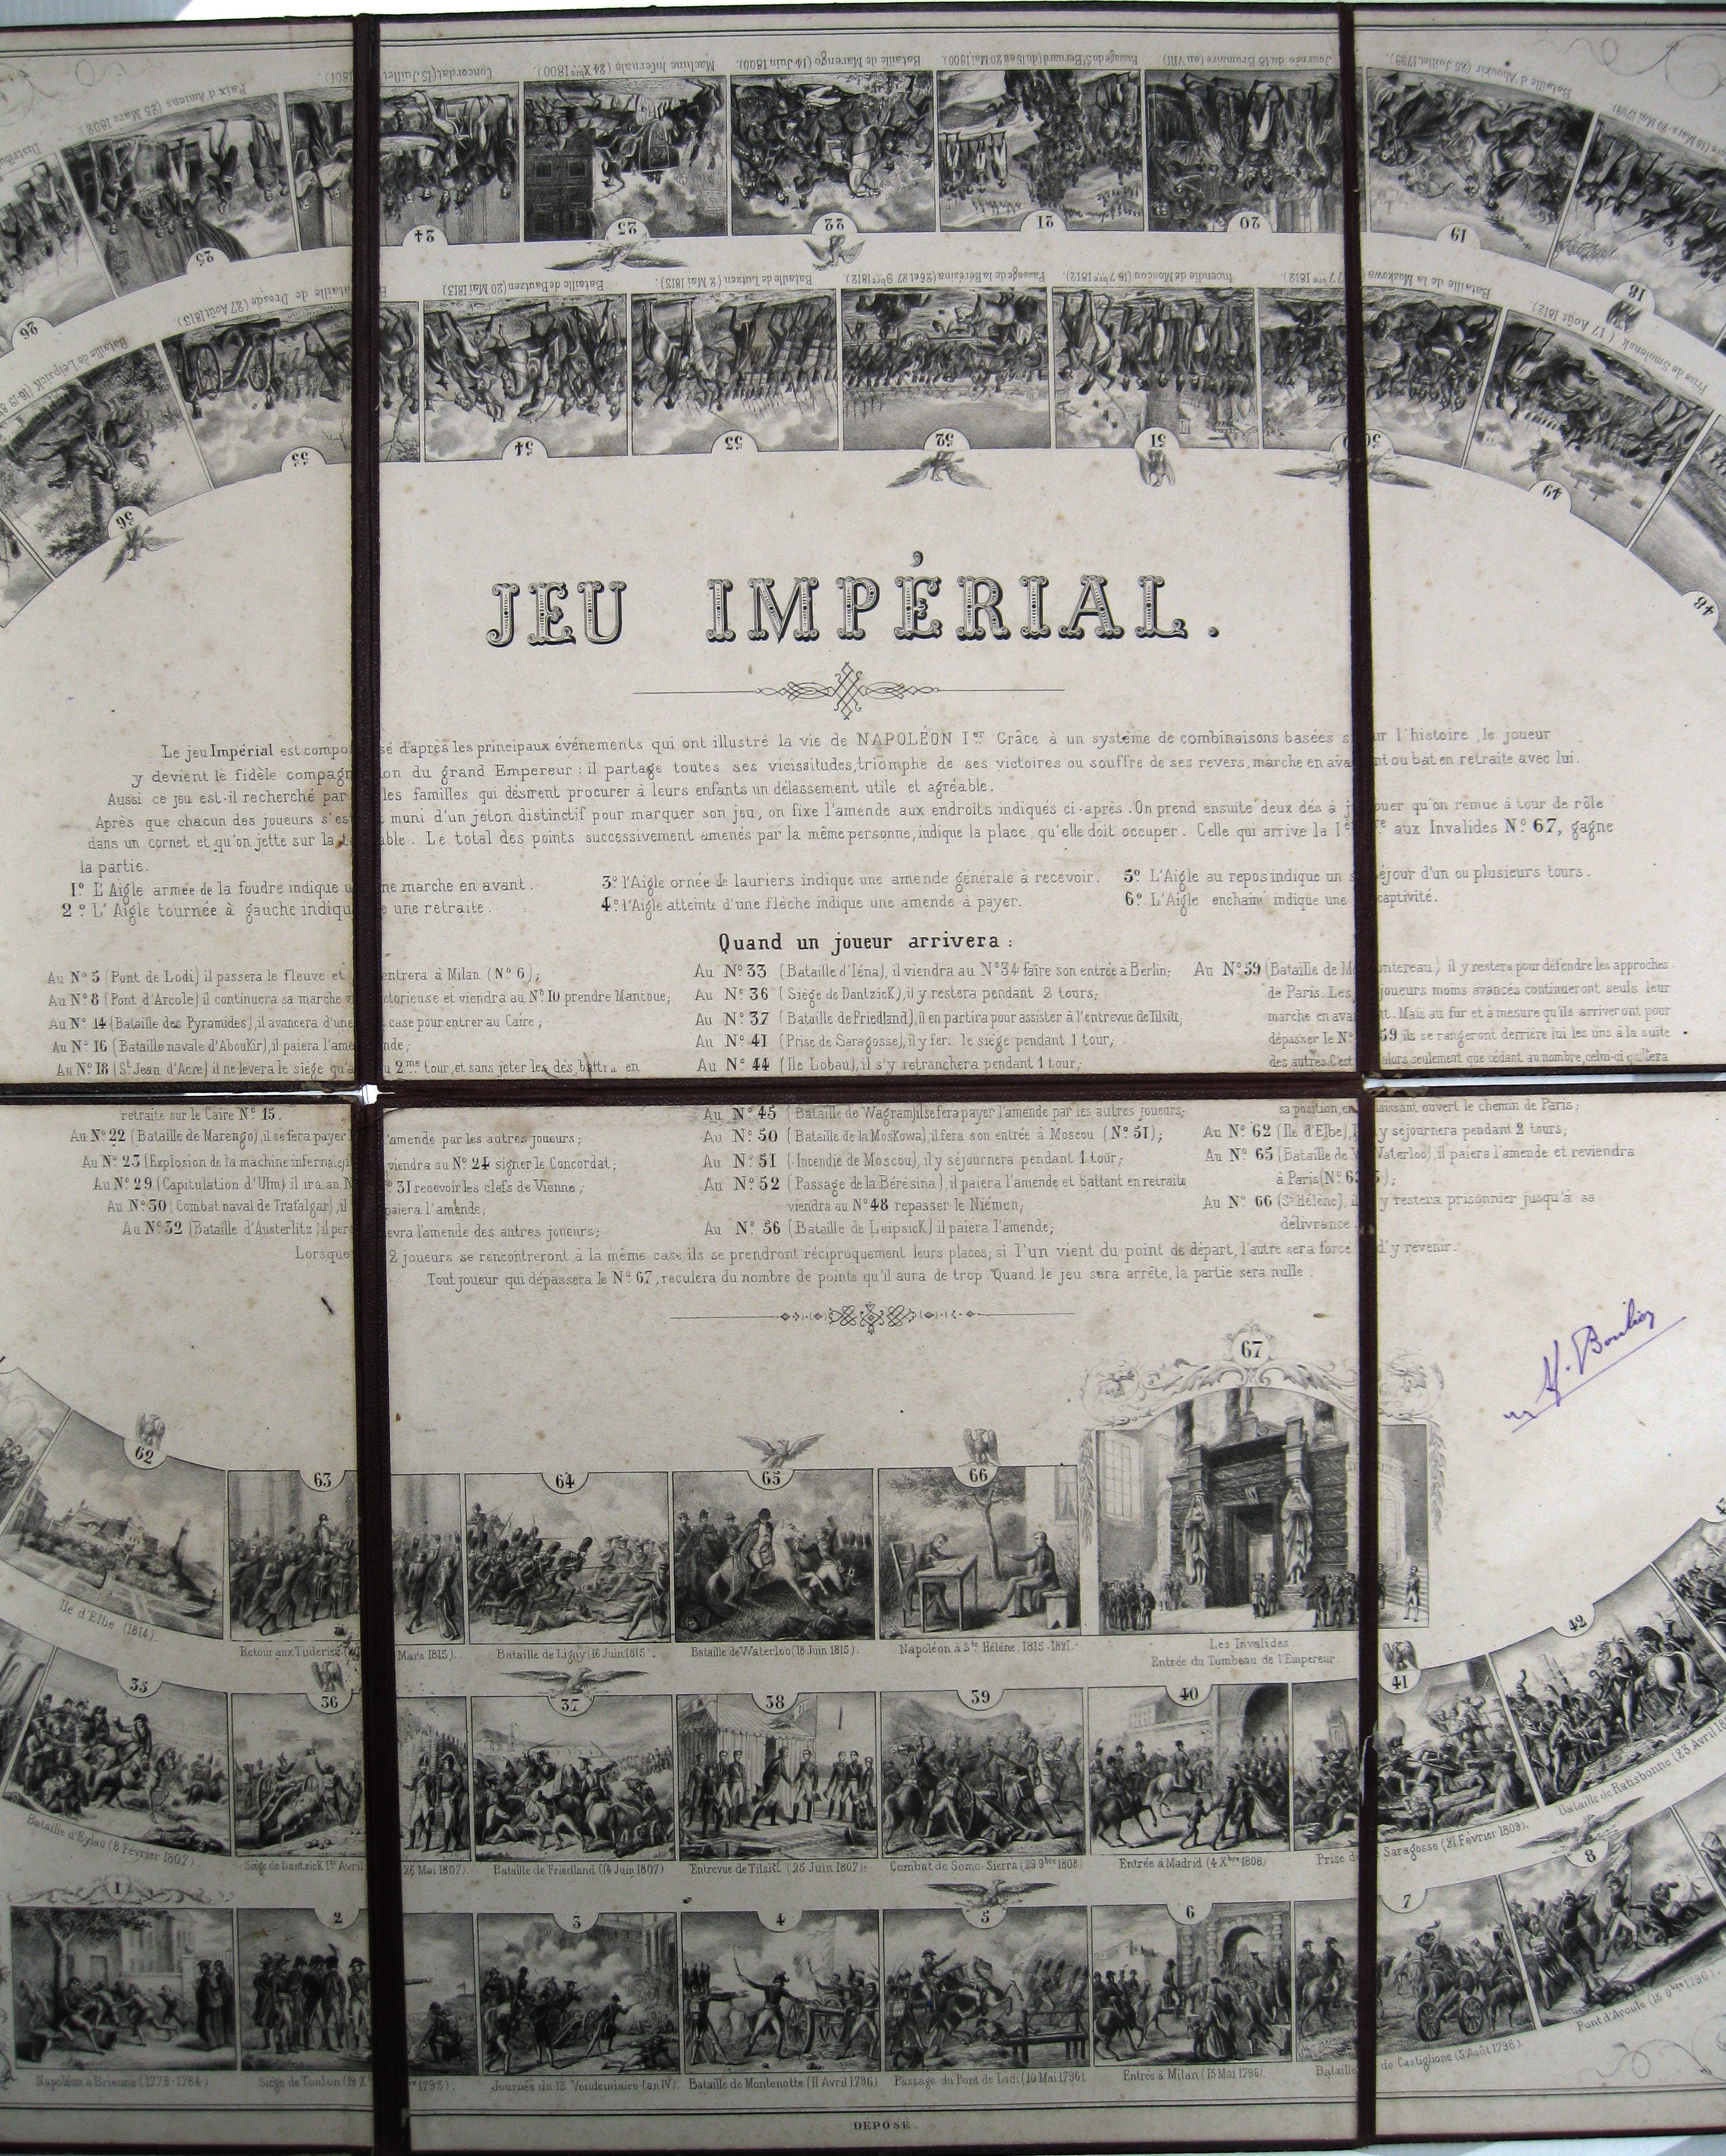 Concordat (15 Juillet 1801).
Machine Infernale (24 Xbre 1800).
Bataille de Marengo (14 Juin 1800).
Passage du St Bernard (du 15 au 20 Mai 1800)
Journée du 18 Brumaire (an VIII)
Bataille d'Aboukir (25 Juillet 1799).
Paix d'Amiens (25 Mars 1802)
26
25
24
23
22
21
20
19
18
Bataille de Leipsick (16-19
Bataille de Dresde (27 Août 1813)
Bataille de Bautzen 20 Mai 1813)
Bataille de Lutzen (2 Mai 1813).
Passage de la Bérésina (26 et 27 9bre 1812).
Incendie de Moscou (16 7bre 1812).
Bataille de la Moskowa (7 7bre 1812)
Prise de Smolensk (17 Août 1812).
56
55
54
53
52
51
50
49
48
JEU IMPÉRIAL.
Le jeu Impérial est composé d'après les principaux événements qui ont illustré la vie de NAPOLÉON Ier Grâce à un système de combinaisons basées sur l'histoire, le joueur
y devient le fidèle compagnon du grand Empereur: il partage toutes ses vicissitudes, triomphe de ses victoires ou souffre de ses revers, marche en avant ou bat en retraite avec lui.
Aussi ce jeu est-il recherché par les familles qui désirent procurer à leurs enfants un délassement utile et agréable.
Après que chacun des joueurs s'est muni d'un jeton distinctif pour marquer son jeu, on fixe l'amende aux endroits indiqués ci-après. On prend ensuite deux dés à jouer qu'on remue à tour de rôle
dans un cornet et qu'on jette sur la table. Le total des points successivement amenés par la même personne, indique la place qu'elle doit occuper. Celle qui arrive la Iere aux Invalides No. 67, gagne
la partie.
1o L'Aigle armée de la foudre indique une marche en avant.
2o L'Aigle tournée à gauche indique une retraite.
3o l'Aigle ornée de lauriers indique une amende générale à recevoir.
4o l'Aigle atteinte d'une flèche indique une amende à payer.
5o L'Aigle au repos indique un séjour d'un ou plusieurs tours.
6o L'Aigle enchainé indique une captivité.
Quand un joueur arrivera:
Au No 5 (Pont de Lodi) il passera le fleuve et entrera à Milan (No 6);
Au No 8 (Pont d'Arcole) il continuera sa marche victorieuse et viendra au No 10 prendre Mantoue;
Au No 14 (Bataille des Pyramides), il avancera d'une case pour entrer au Caire;
Au No 16 (Bataille navale d'Aboukir), il paiera l'amende;
Au No 18 (St Jean d'Acre) il ne levera le siége qu'au 2me tour, et sans jeter les dés, battra en
retraite sur le Caire No 15.
Au No 22 (Bataille de Marengo), il se fera payer l'amende par les autres joueurs;
Au No 23 (Explosion de la machine infernale), il viendra au No 24 signer le Concordat;
Au No 29 (Capitulation d'Ulm) il ira au No 31 recevoir les clefs de Vienne;
Au No 30 (Combat naval de Trafalgar), il paiera l'amende;
Au No 32 (Bataille d'Austerlitz) il percevra l'amende des autres joueurs;
Au No 33 (Bataille d'Iéna), il viendra au No 34 faire son entrée à Berlin;
Au No 36 (Siége de Dantzick), il y restera pendant 2 tours;
Au No 37 (Bataille de Friedland), il en partira pour assister à l'entrevue de Tilsitt;
Au No 41 (Prise de Saragosse), il y fer. le siége pendant 1 tour;
Au No 44 (Ile Lobau), il s'y retranchera pendant 1 tour;
Au No 45 (Bataille de Wagram) il se fera payer l'amende par les autres joueurs;
Au No 50 (Bataille de la Moskowa), il fera son entrée à Moscou (No 51);
Au No 51 (Incendie de Moscou), il y séjournera pendant 1 tour;
Au No 52 (Passage de la Bérésina), il paiera l'amende et battant en retraite
viendra au No 48 repasser le Niémen;
Au No 56 (Bataille de Leipsick) il paiera l'amende;
Au No 59 (Bataille de Montereau) il y restera pour défendre les approches
de Paris. Les joueurs moins avancés continueront seuls leur
marche en avant. Mais au fur et à mesure qu'ils arriveront pour
dépasser le No 59, ils se rangeront derrière lui les uns à la suite
des autres. C'est alors seulement que cédant au nombre, celui-ci quittera
sa position, en laissant ouvert le chemin de Paris;
Au No 62 (Ile d'Elbe), il y séjournera pendant 2 tours;
Au No 65 (Bataille de Waterloo), il paiera l'amende et reviendra
à Paris (No 63);
Au No 66 (Ste Hélène), il y restera prisonnier jusqu'à sa
délivrance.
Lorsque 2 joueurs se rencontreront à la même case, ils se prendront réciproquement leurs places; si l'un vient du point de départ, l'autre sera force d'y revenir.
Tout joueur qui dépassera le No 67, reculera du nombre de points qu'il aura de trop. Quand le jeu sera arrêté, la partie sera nulle.
62
63
64
65
66
67
Ile d'Elbe (1814).
Retour aux Tuileries (20 Mars 1815).
Bataille de Ligny (16 Juin 1815).
Bataille de Waterloo (18 Juin 1815).
Napoléon à Ste Hélène, 1815-1821.
Les Invalides
Entrée du Tombeau de l'Empereur.
35
36
37
38
39
40
41
42
Bataille d'Eylau (8 Février 1807).
Siége de Dantzick 1er Avril 26 Mai 1807).
Bataille de Friedland (14 Juin 1807)
Entrevue de Tilsitt (25 Juin 1807).
Combat de Somo-Sierra (29 9bre 1808
Entrée à Madrid (4 Xbre 1808)
Prise de Saragosse (21 Février 1809).
Bataille de Ratisbonne (23 Avril
1
2
3
4
5
6
7
8
Napoléon à Brienne (1779-1784)
Siége de Toulon (19 Xbre 1793).
Journée du 13 Vendemiaire (an IV).
Bataille de Montenotte (11 Avril 1796)
Passage du Pont de Lodi (10 Mai 1796)
Entrée à Milan (15 Mai 1796).
Bataille de Castiglione (5 Août 1796).
Pont d'Arcole (15 9bre 1796).
DÉPOSÉ.